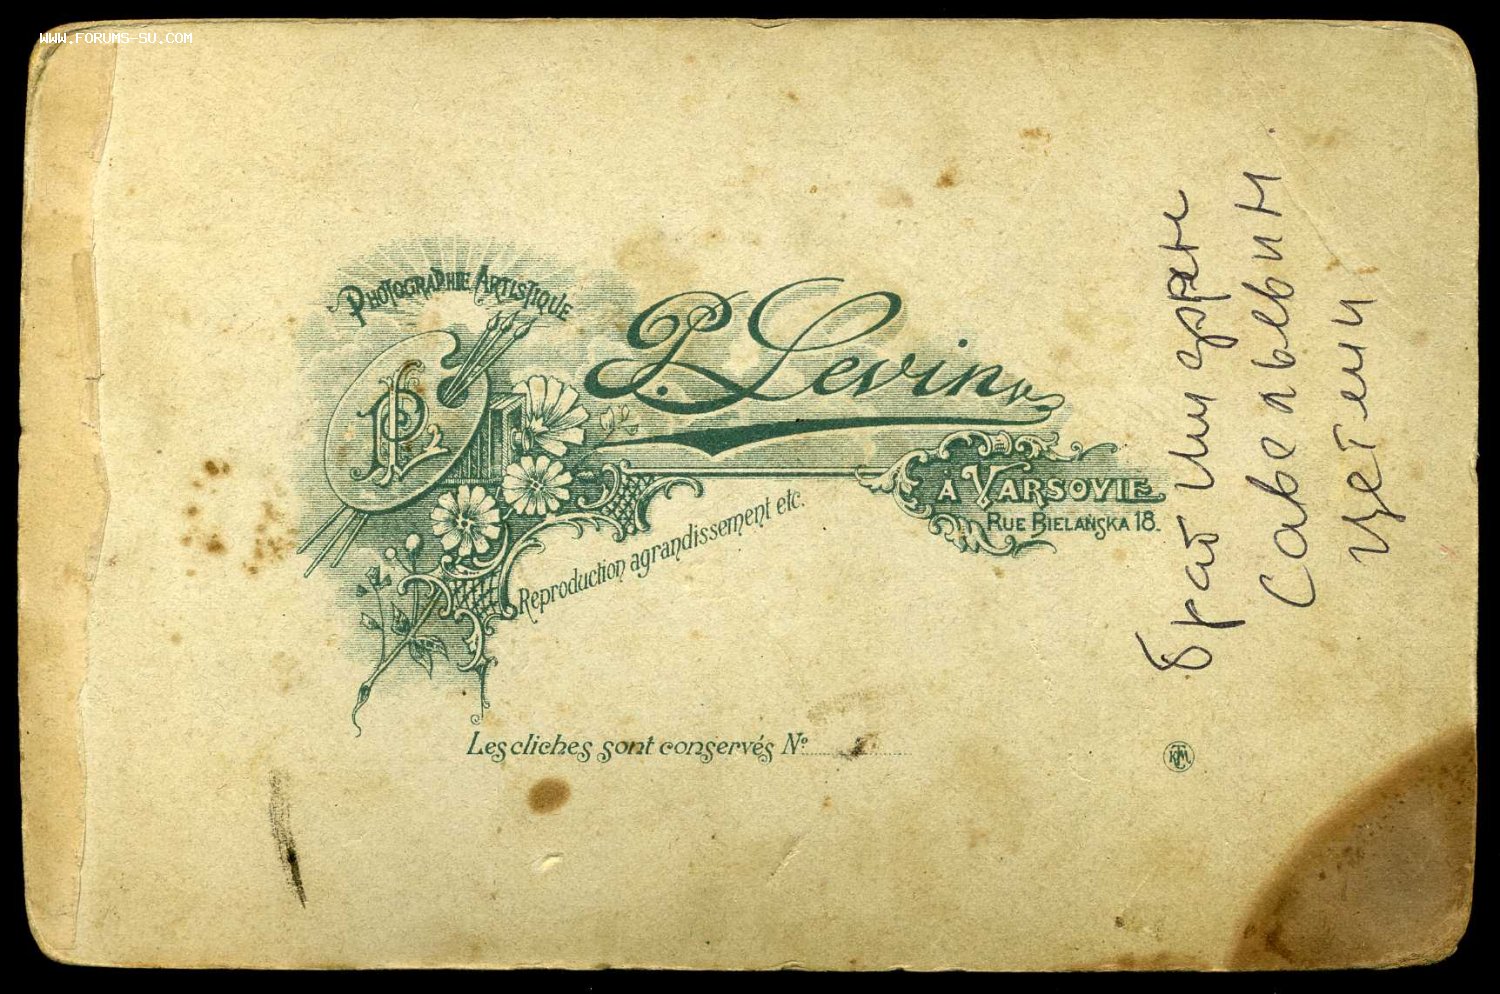 WWW.FORUMS-SU.COM
PHOTOGRAPHIE ARTISTIQUE
PL
P. Levin
À VARSOVIE
RUE BIELAŃSKA 18.
Reproduction agrandissement etc.
Les cliches sont conservés №
брат